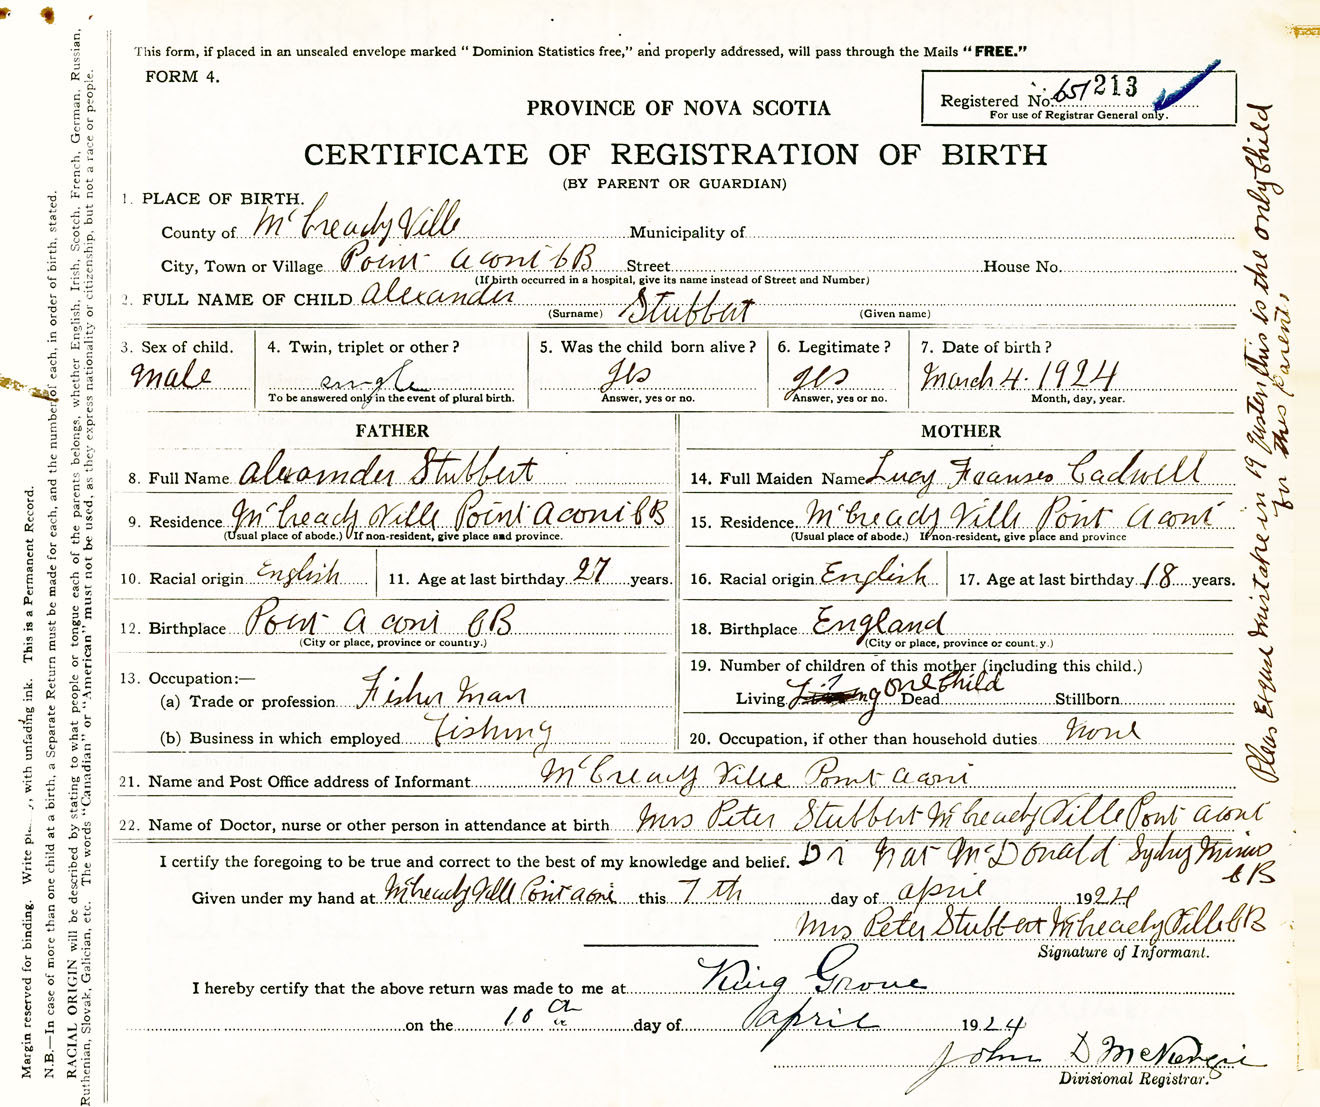 This form, if placed in an unsealed envelope marked "Dominion Statistics free," and properly addressed, will pass through the Mails "FREE."
FORM 4.
Registered No. 651213
For use of Registrar General only.
PROVINCE OF NOVA SCOTIA
CERTIFICATE OF REGISTRATION OF BIRTH
(BY PARENT OR GUARDIAN)
1. PLACE OF BIRTH.
County of McCready Ville Municipality of
City, Town or Village Point Aconi CB Street House No.
(If birth occurred in a hospital, give its name instead of Street and Number)
2. FULL NAME OF CHILD Alexander Stubbert
(Surname) (Given name)
3. Sex of child. 4. Twin, triplet or other? 5. Was the child born alive? 6. Legitimate? 7. Date of birth?
male single yes yes March 4. 1924
To be answered only in the event of plural birth. Answer, yes or no. Answer, yes or no. Month, day, year.
FATHER
8. Full Name Alexander Stubbert
9. Residence McCready Ville Point Aconi CB
(Usual place of abode.) If non-resident, give place and province.
10. Racial origin English 11. Age at last birthday 27 years.
12. Birthplace Point Aconi CB
(City or place, province or country.)
13. Occupation:—
(a) Trade or profession Fisher man
(b) Business in which employed Fishing
MOTHER
14. Full Maiden Name Lucy Franses Cadwell
15. Residence McCready Ville Pont Aconi
(Usual place of abode.) If non-resident, give place and province
16. Racial origin English 17. Age at last birthday 18 years.
18. Birthplace England
(City or place, province or county.)
19. Number of children of this mother (including this child.)
Living One Child Dead Stillborn
20. Occupation, if other than household duties None
21. Name and Post Office address of Informant McCready Ville Pont Aconi
22. Name of Doctor, nurse or other person in attendance at birth Mrs Peter Stubbert McCready Ville Pont Aconi
I certify the foregoing to be true and correct to the best of my knowledge and belief. Dr McDonald Sydney Mines CB
Given under my hand at McCready Ville Pont Aconi this 7th day of April 1924
Mrs Peter Stubbert McCready Ville CB
Signature of Informant.
I hereby certify that the above return was made to me at King Grove
on the 10th day of April 1924
John D McKenzie
Divisional Registrar.
Margin reserved for binding. Write with unfading ink. This is a Permanent Record.
N.B.—In case of more than one child at a birth, a Separate Return must be made for each, and the number of each, in order of birth, stated.
RACIAL ORIGIN will be described by stating to what people or tongue each of the parents belongs, whether English, Irish, Scotch, French, German, Russian,
Ruthenian, Slovak, Galician, etc. The words "Canadian" or "American" must not be used, as they express nationality or citizenship, but not a race or people.
Pleas mistake in 19 this is the only Child
for this Parents